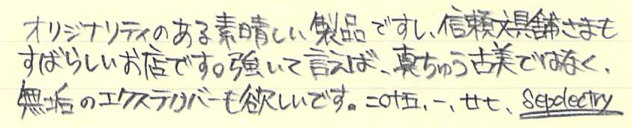 オリジナリティのある素晴しい製品ですし、信頼文具舗さまも
すばらしいお店です。強いて言えば、真ちゅう古美ではなく、
無垢のエクステリバーも欲しいです。二〇十五、一、廿七、